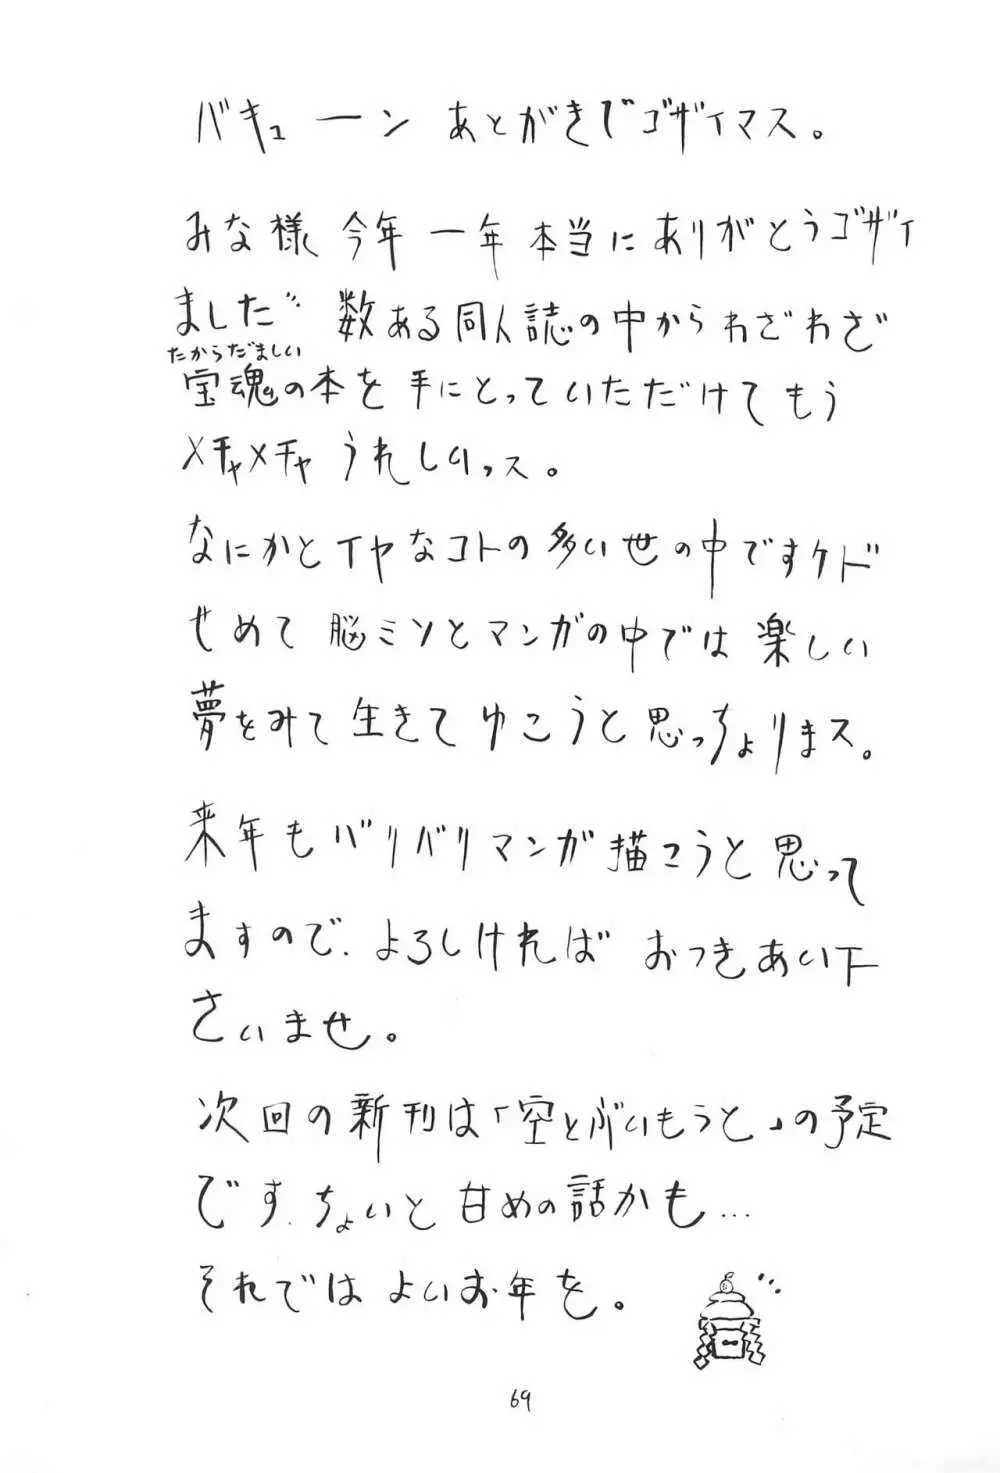 バキューン あとがきでゴザイマス。
みな様 今年 一年 本当に ありがとうゴザイ
ました゛ 数ある同人誌の中からわざわざ
たからだましい
宝魂の本を 手にとっていただけて もう
メチャメチャ うれしいッス。
なにかとイヤなコトの多い世の中ですケド
せめて 脳ミソとマンガの中では 楽しい
夢をみて 生きて ゆこうと 思っちょりまス。
来年もバリバリマンガ描こうと思って
ますので、よろしければ おつきあい下
さいませ。
次回の新刊は「空とぶいもうと」の予定
です、ちょいと 甘めの話かも…
それでは よいお年を。
69